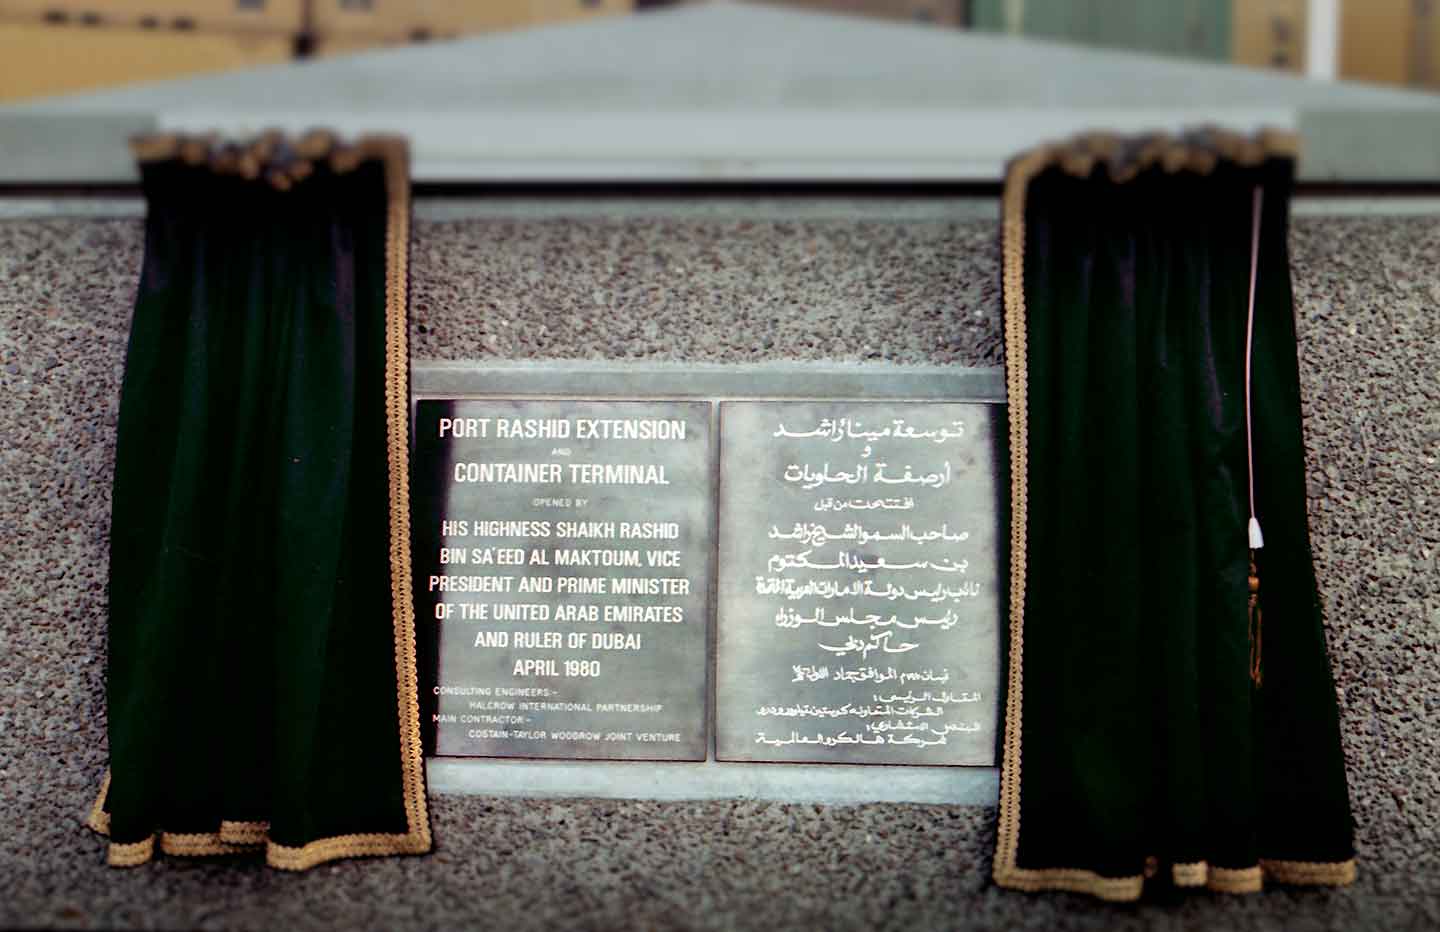 PORT RASHID EXTENSION
AND
CONTAINER TERMINAL
OPENED BY
HIS HIGHNESS SHAIKH RASHID
BIN SA'EED AL MAKTOUM, VICE
PRESIDENT AND PRIME MINISTER
OF THE UNITED ARAB EMIRATES
AND RULER OF DUBAI
APRIL 1980
CONSULTING ENGINEERS:-
HALCROW INTERNATIONAL PARTNERSHIP
MAIN CONTRACTOR:-
COSTAIN-TAYLOR WOODROW JOINT VENTURE
توسعة ميناء راشد
و
أرصفة الحاويات
افتتحت من قبل
صاحب السمو الشيخ راشد
بن سعيد المكتوم
نائب رئيس دولة الامارات العربية المتحدة
رئيس مجلس الوزراء
حاكم دبي
نيسان الموافق جماد
المقاول الرئيسي:
الشركات المتعاونه كوستين تيلور وودرو
المهندس الاستشاري:
شركة هالكرو العالمية